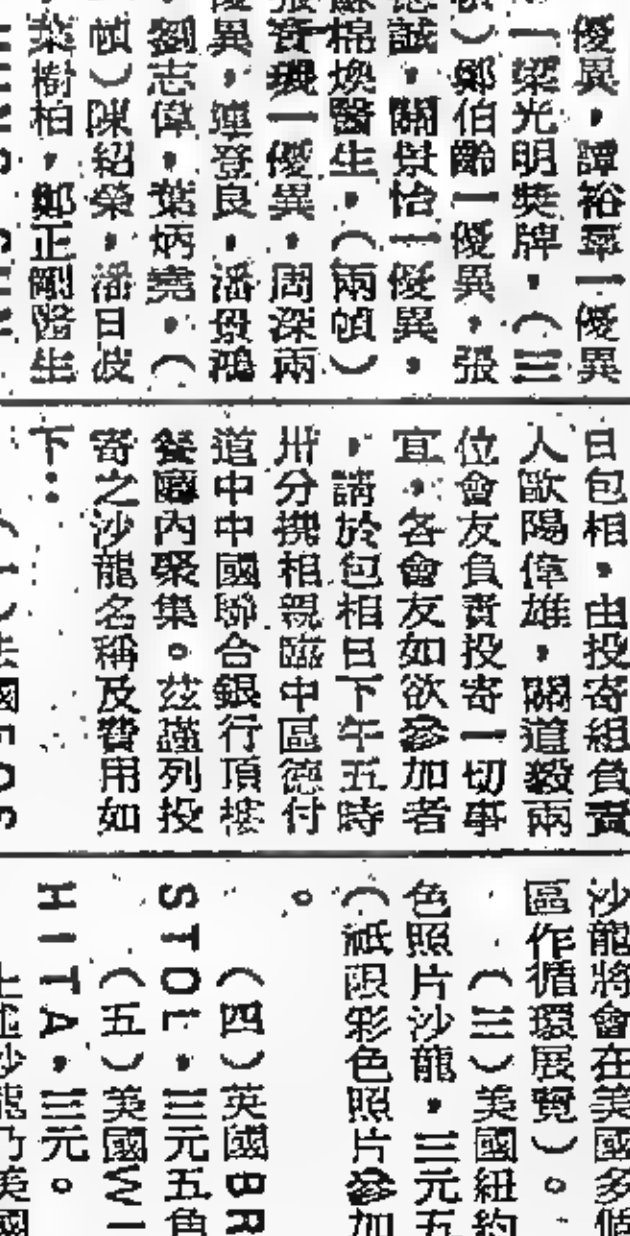 優異，譚裕羣一優異
「梁光明獎牌，（三
）鄭伯齡一優異，張
誠，關景怡一優異，
棉煥醫生，（兩幀）
一優異，周深兩
異，連登良，潘景鴻
劉志偉，葉炳堯，（
幀）陳紹榮，潘日波
葉樹柏，鄭正剛醫生
日包相，由投寄組負責
人歐陽偉雄，關道毅兩
位會友負責投寄一切事
宜，各會友如欲參加者
，請於包相日下午五時
卅分携相親臨中區德付
道中中國聯合銀行頂樓
餐廳內聚集。茲謹列投
寄之沙龍名稱及費用如
下：
沙龍將會在美國多個
區作循環展覽）。
（三）美國紐約
色照片沙龍，三元五
（祇限彩色照片參加
。
（四）英國BR
STOL，三元五角
（五）美國WI
HITA，三元。